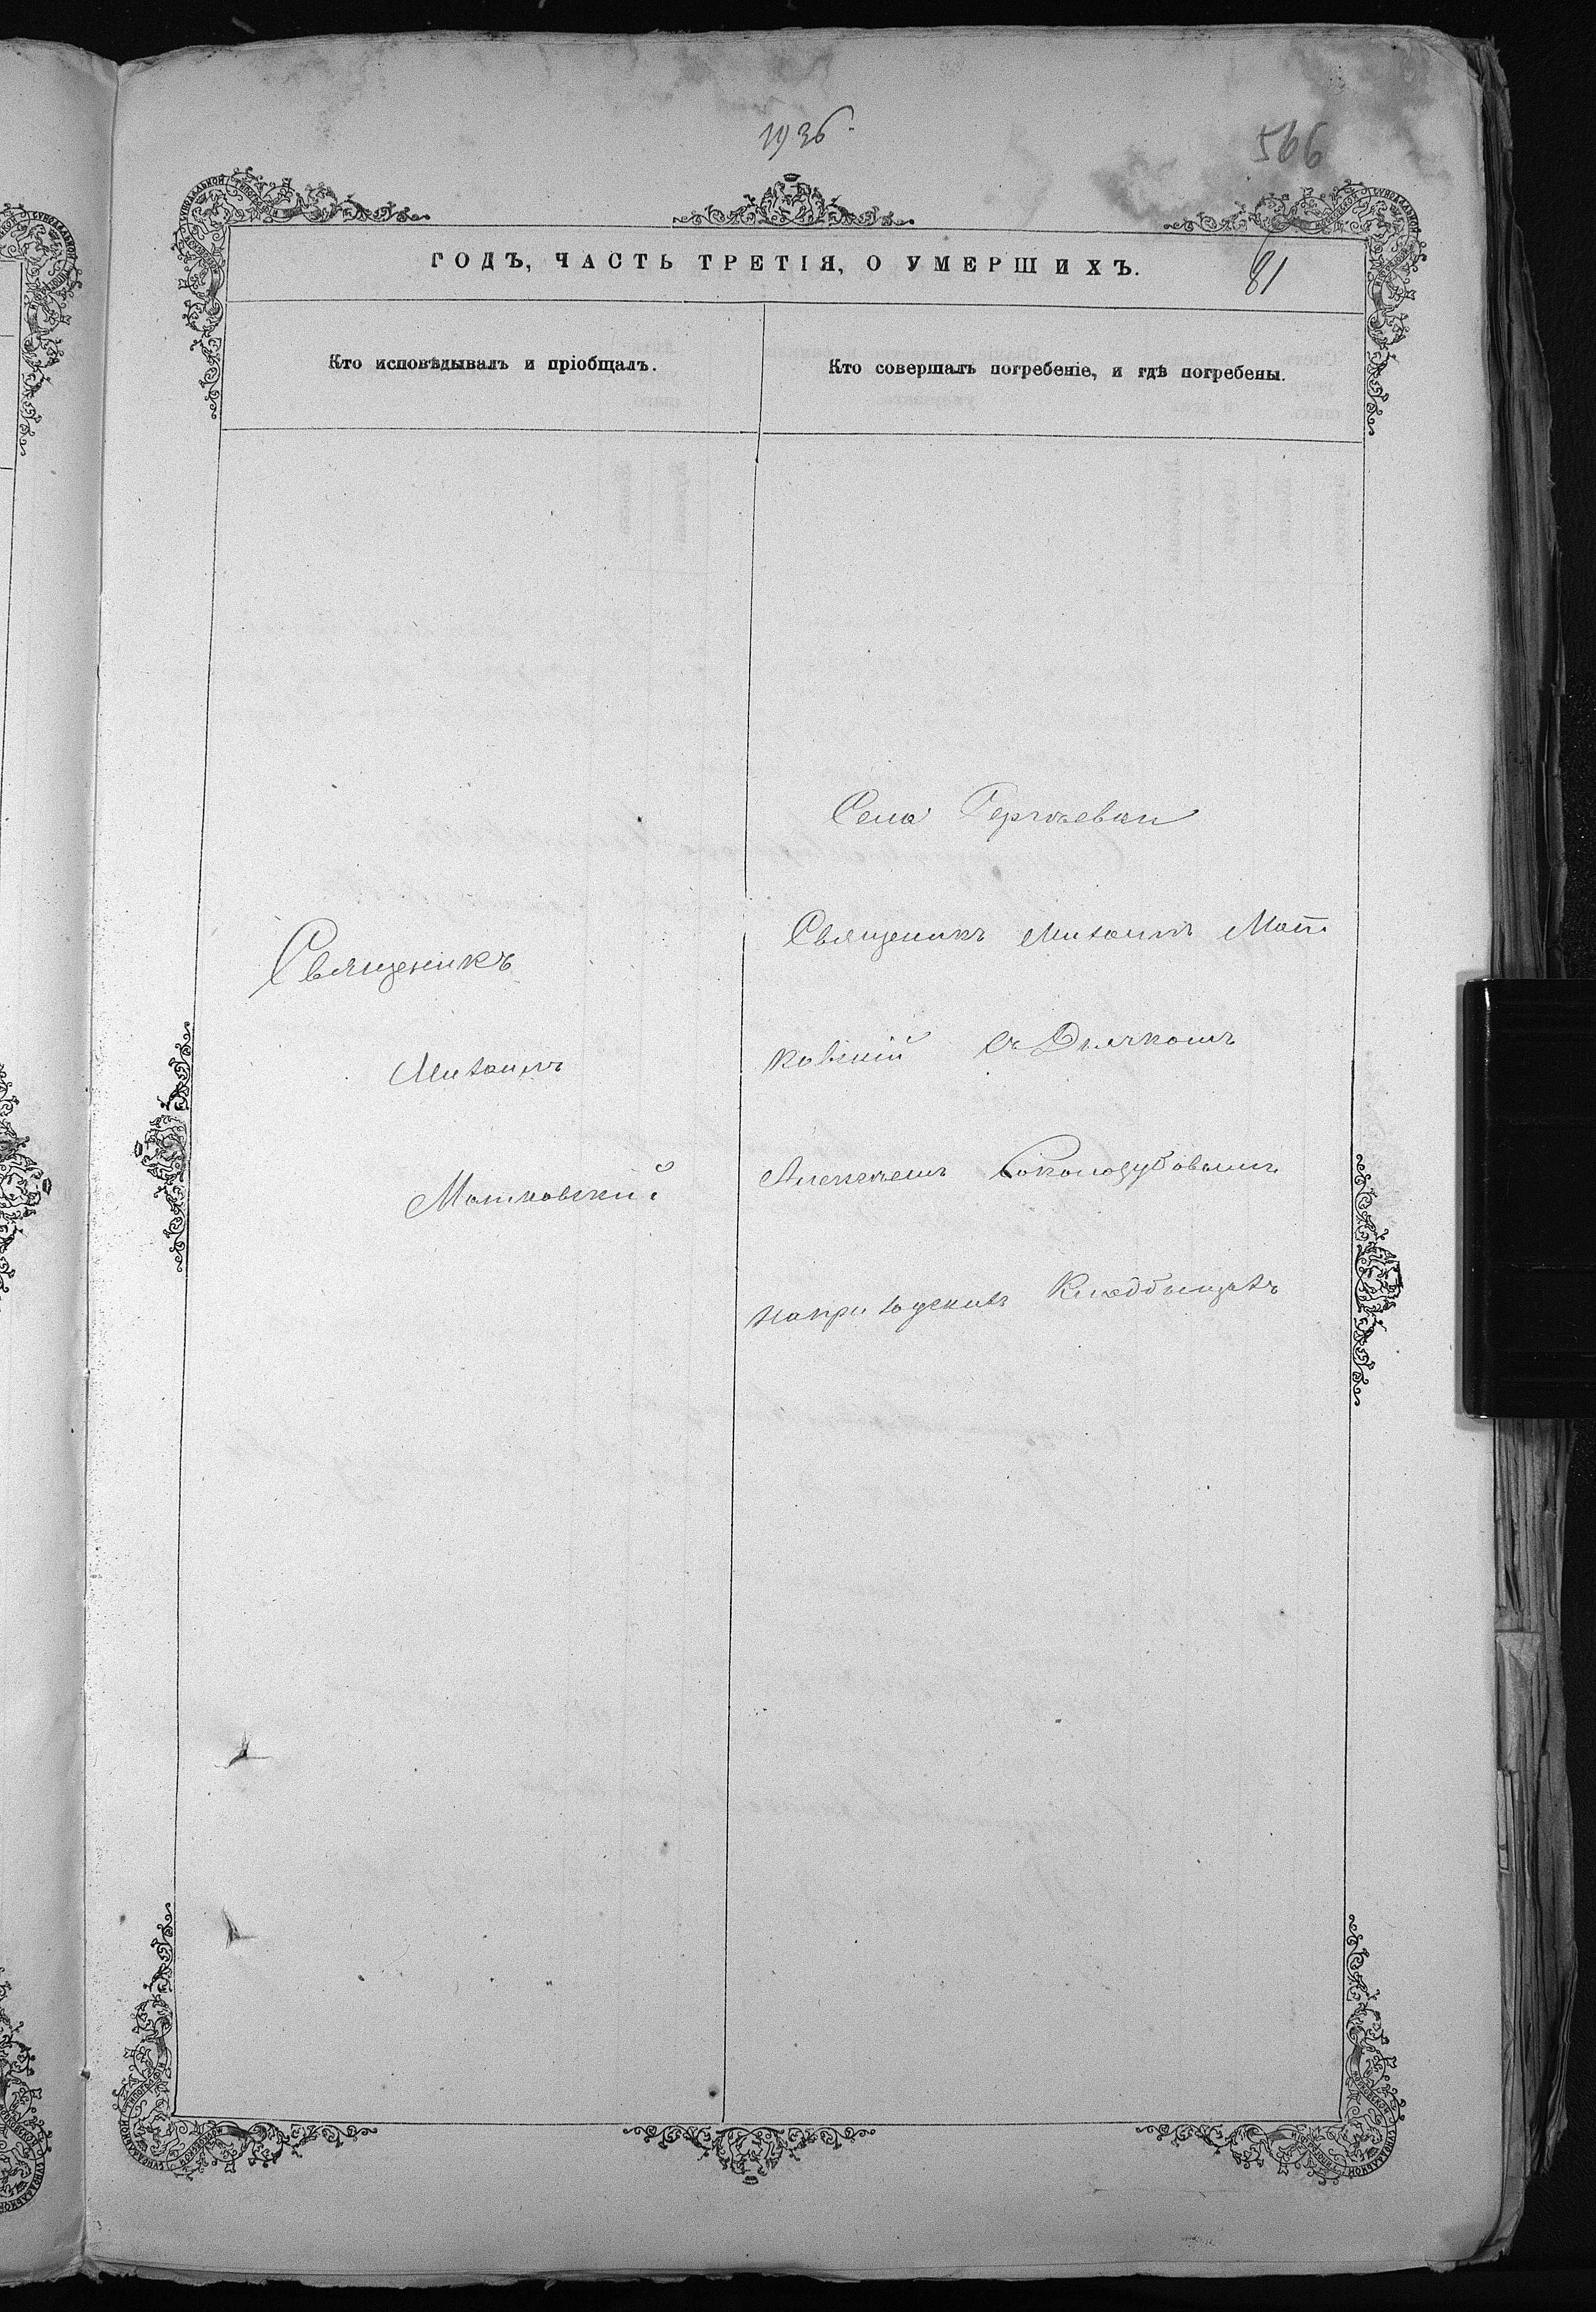 1936
566
ГОДЪ, ЧАСТЬ ТРЕТІЯ, О УМЕРШИХЪ.
81
Кто исповѣдывалъ и пріобщалъ.
Кто совершалъ погребеніе, и гдѣ погребены.
Священикъ
Михаилъ
Матковскій
Села
Священикъ Михаилъ Мат
ковскій съ Дьячкомъ
Алексѣемъ
на приходскихъ Кладбищахъ